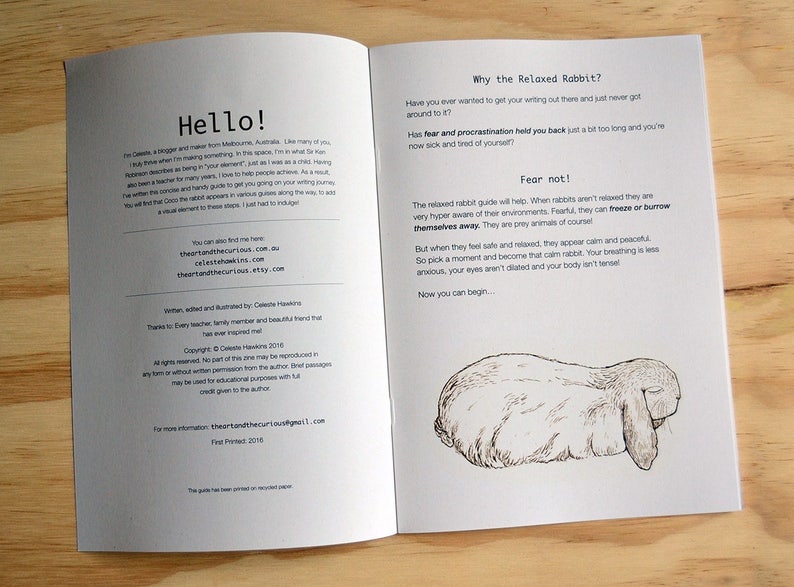 Hello!
I'm Celeste, a blogger and maker from Melbourne, Australia. Like many of you,
I truly thrive when I'm making something. In this space, I'm in what Sir Ken
Robinson describes as being in "your element", just as I was as a child. Having
also been a teacher for many years, I love to help people achieve. As a result,
I've written this concise and handy guide to get you going on your writing journey.
You will find that Coco the rabbit appears in various guises along the way, to add
a visual element to these steps. I just had to indulge!
You can also find me here:
theartandthecurious.com.au
celestehawkins.com
theartandthecurious.etsy.com
Written, edited and illustrated by: Celeste Hawkins
Thanks to: Every teacher, family member and beautiful friend that
has ever inspired me!
Copyright: © Celeste Hawkins 2016
All rights reserved. No part of this zine may be reproduced in
any form or without written permission from the author. Brief passages
may be used for educational purposes with full
credit given to the author.
For more information: theartandthecurious@gmail.com
First Printed: 2016
This guide has been printed on recycled paper.
Why the Relaxed Rabbit?
Have you ever wanted to get your writing out there and just never got
around to it?
Has fear and procrastination held you back just a bit too long and you're
now sick and tired of yourself?
Fear not!
The relaxed rabbit guide will help. When rabbits aren't relaxed they are
very hyper aware of their environments. Fearful, they can freeze or burrow
themselves away. They are prey animals of course!
But when they feel safe and relaxed, they appear calm and peaceful.
So pick a moment and become that calm rabbit. Your breathing is less
anxious, your eyes aren't dilated and your body isn't tense!
Now you can begin...